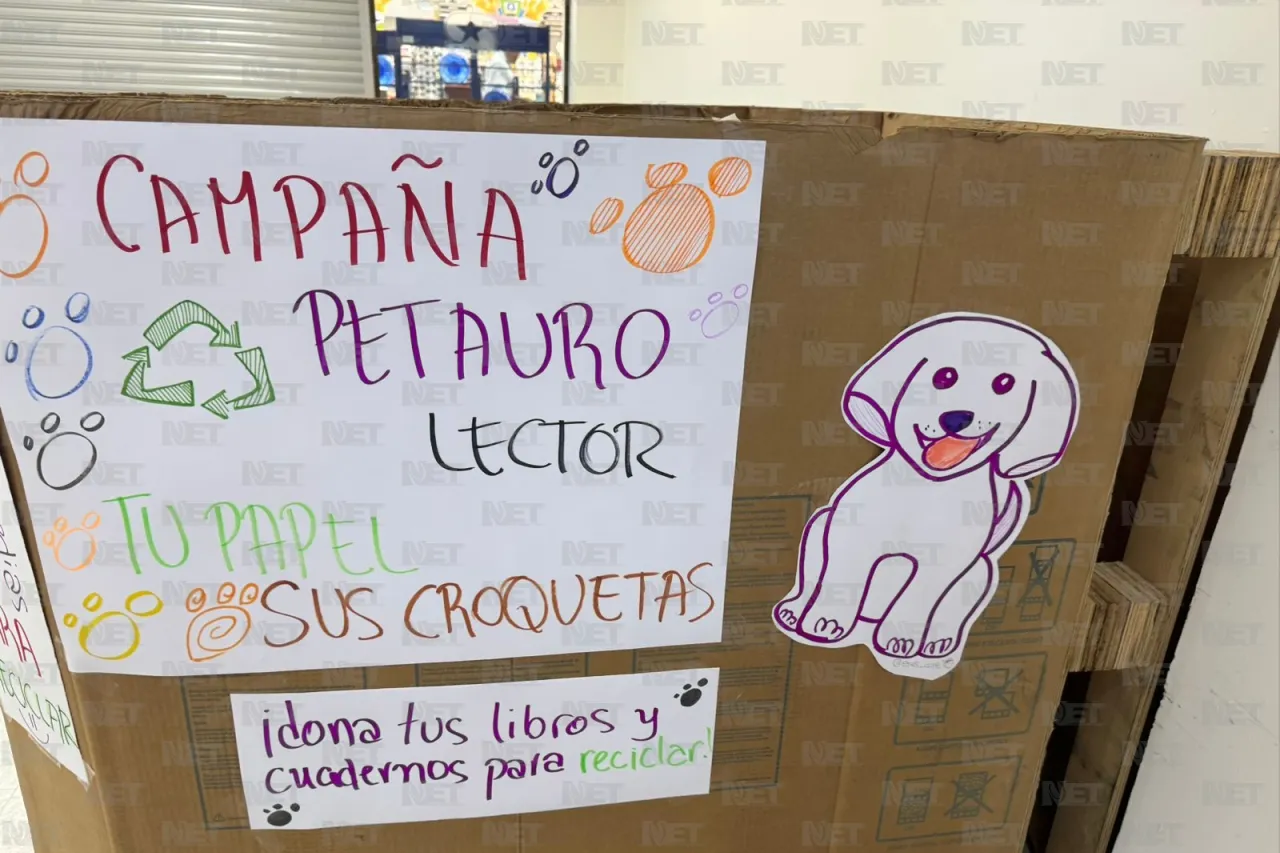 CAMPAÑA
PETAURO
LECTOR
TU PAPEL
SUS CROQUETAS
¡dona tus libros y
cuadernos para reciclar!
RECICLAR
NET